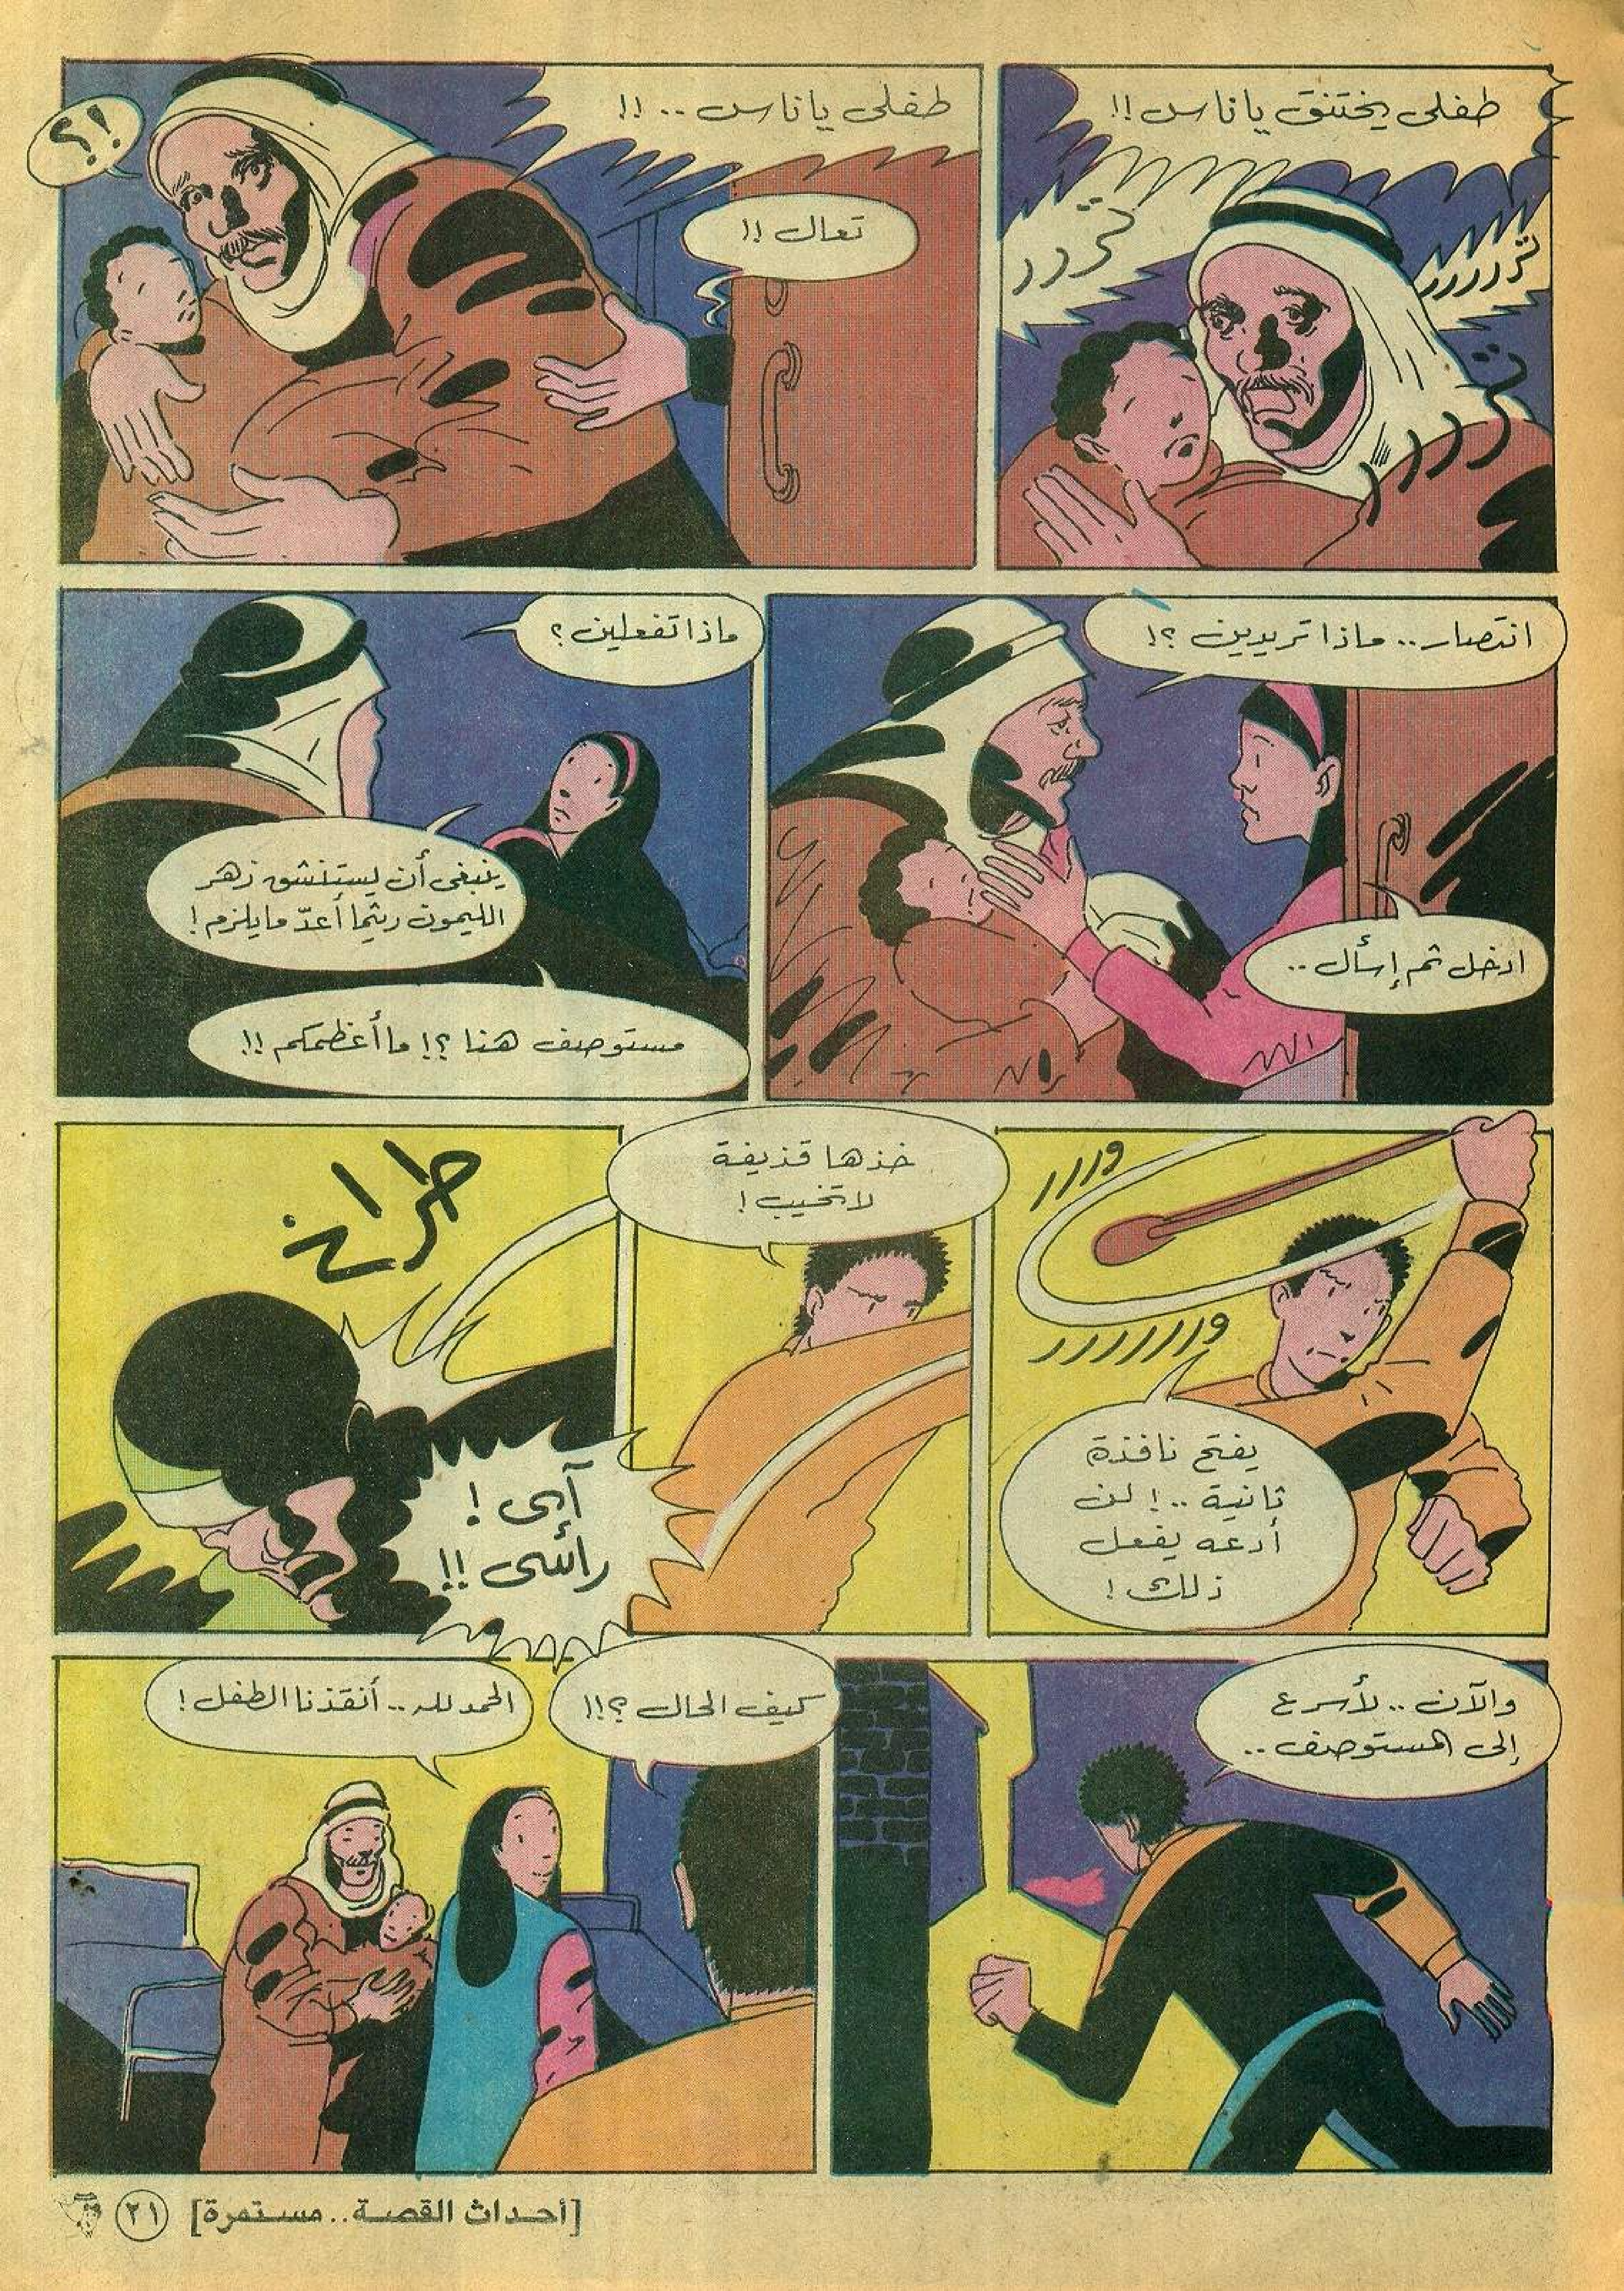 طفلي يختنق يا ناس !!
تررر
تررررر
تررررر
طفلي يا ناس .. !!
تعال !!
!؟
انتصار .. ماذا تريدين ؟!
ادخل ثم إسأل ..
ماذا تفعلين ؟
ينبغي أن يستنشق زهر
الليمون ريثما أعدّ ما يلزم !
مستوصف هنا ؟! ما أعظمكم !!
وررر
وررررررر
يفتح نافذة
ثانية .. ! لن
أدعه يفعل
ذلك !
خذها قذيفة
لا تخيب !
طراخ
آيي !
رأسي !!
والآن .. لأسرع
إلى المستوصف ..
كيف الحال ؟!!
الحمد لله .. أنقذنا الطفل !
[أحداث القصة .. مستمرة] ٢١